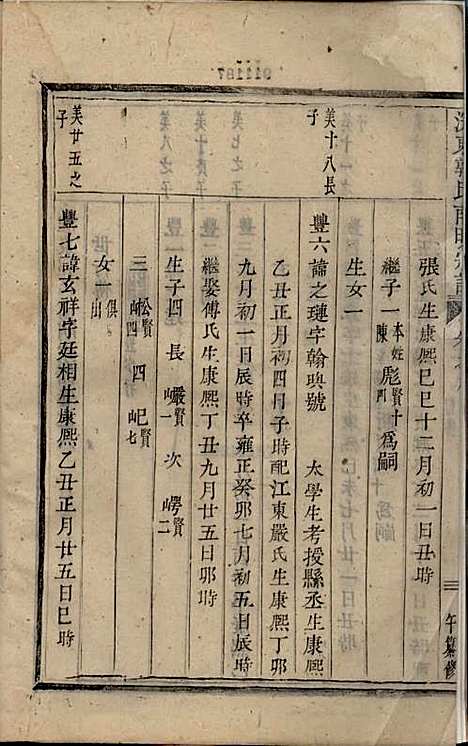 張氏生康熙己巳十二月初一日丑時
繼子一本姓陳彪賢十四爲嗣
生女一
美十八長子
豐六諱之璉字翰璵號 太學生考授縣丞生康熙
乙丑正月初四日子時配江東嚴氏生康熙丁卯
九月初一日辰時卒雍正癸卯七月初五日辰時
繼娶傅氏生康熙丁丑九月廿五日卯時
生子四 長巗賢一 次㟧賢二
三崧賢四 四屺賢七
女一俱出
美廿五之子
豐七諱玄祥字廷相生康熙乙丑正月廿五日巳時
午纂修